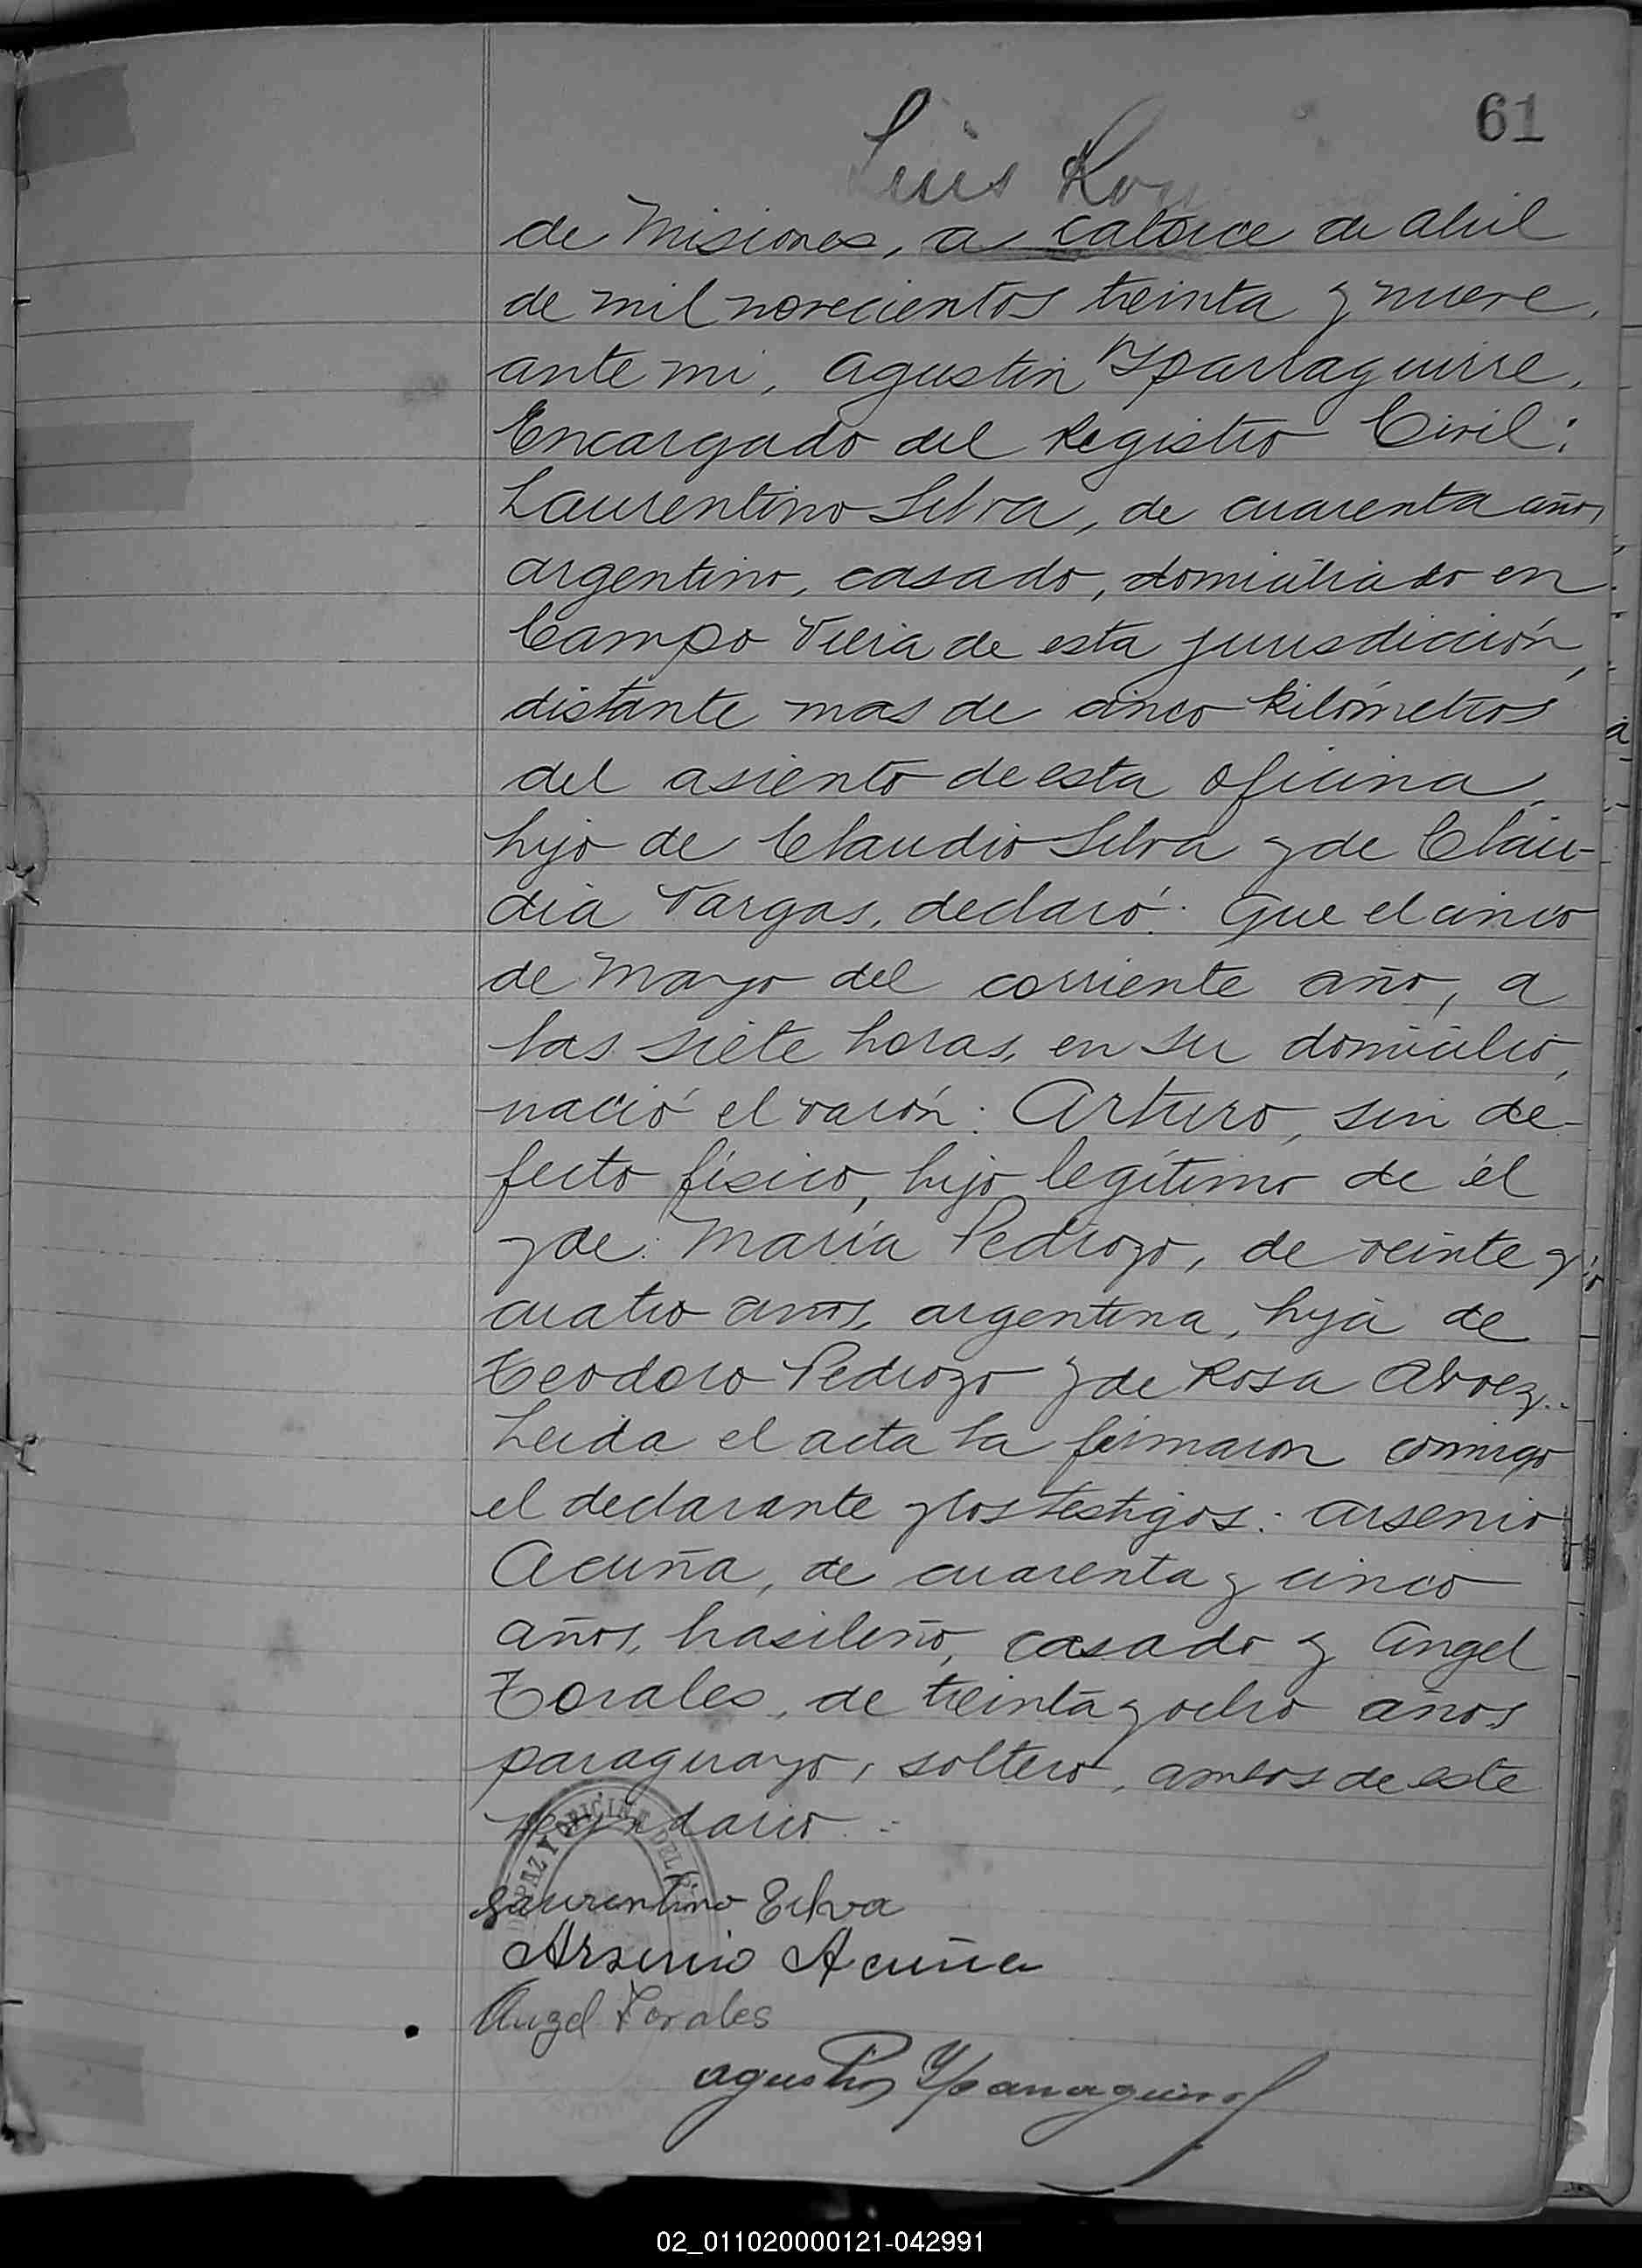 61
Luis
de Misiones, a catorce de abril
de mil novecientos treinta y nueve,
ante mi, Agustin Yparraguirre,
Encargado del Registro Civil:
Laurentino Silva, de cuarenta años
argentino, casado, domiciliado en
Campo Viera de esta jurisdicción,
distante mas de cinco kilómetros
del asiento de esta oficina,
hijo de Claudio Silva y de Cláu-
dia Vargas, declaró: Que el cinco
de Marzo del corriente año, a
las siete horas, en su domicilio,
nació el varón: Arturo, sin de-
fecto físico, hijo legítimo de él
y de: María Pedrozo, de veinte y
cuatro años, argentina, hija de
Teodoro Pedrozo y de Rosa Alvez..
Leida el acta la firmaron conmigo
el declarante y los testigos: Arsenio
Acuña, de cuarenta y cinco
años, brasileño, casado y Angel
Torales, de treinta y ocho años
paraguayo, soltero, ambos de este
vecindario.-
Laurentino Silva
Arsenio Acuña
Angel Torales
Agustin Yparraguirre
02_011020000121-042991